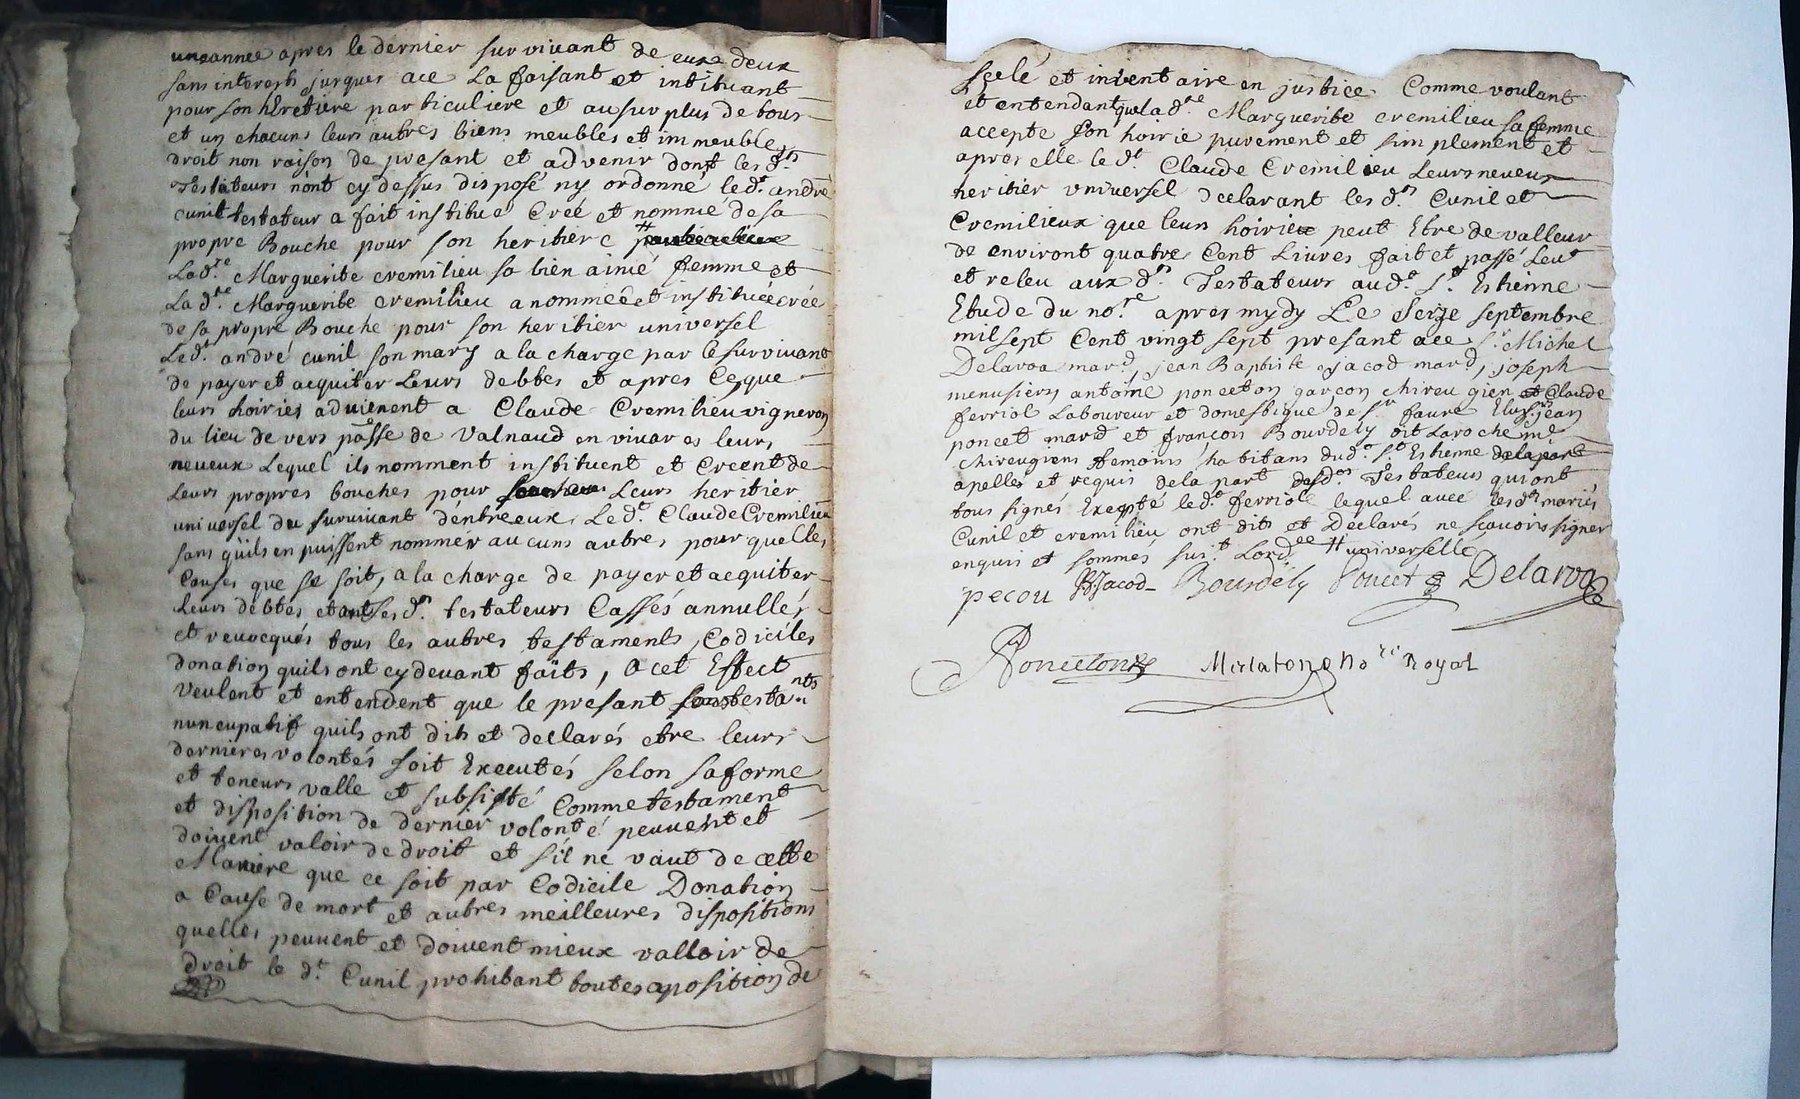 une annee apres le dernier survivant de eux deux
sans interests jusques ace La faisant et intituant
pour son heretiere particuliere et au surplus de tous
et un chacuns leurs autres biens meubles et immeubles
droit non raison de presant et advenir dont les d.ts
Testateurs n'ont cy dessus disposé ny ordonné led.t andré
cunil testateur a fait institué Créé et nommé de sa
propre Bouche pour son heritiere #
Lad.te Marguerite cremilieu sa bien aimé femme et
La d.te Marguerite cremilieu a nommée et instituée créé
de sa propre Bouche pour son heritier universel
Led.t andré cunil son mary a la charge par le survivant
de payer et acquiter Leurs debtes et apres Ce que
leurs hoiries advienent a Claude Cremilieu vigneron
du lieu de vers passe de Valnaud en vivares leurs
neveux Lequel ils nomment instituent et Creent de
Leurs propres bouches pour Leurs heritier
universel du survivant d'entre eux, Led.t Claude Cremilieu
sans quils en puissent nommer aucuns autres pour quelles
Causes que se soit, a la charge de payer et acquiter
Leurs debtes et ont les d.ts testateurs Cassés annullés
et revocqués tous les autres testaments, Codiciles
donation quils ont cy devant faits, a cet Effect
veulent et entendent que le présant testa.nts
nuncupatif quils ont dits et declarés etre leurs
dernieres volontés soit Executés selon sa forme
et teneurs valle et subsisté Comme testament
et disposition de dernier volonté peuvent et
doivent valoir de droit et s'il ne vaut de cette
Maniere que ce soit par Codicile Donation
a Cause de mort et autres meilleures dispositions
quelles peuvent et doivent mieux valloir de
droit le d.t Cunil prohibant toutes aposition de
scelé et inventaire en justice Comme voulant
et entendant que lad.te Marguerite cremilieu sa femme
accepte son hoirie purement et simplement et
apres elle le d.t Claude Cremilieu Leurs neveux
heritier universel declarant les d.ts Cunil et
Cremilieux que leurs hoiries peut Etre de valleur
de environt quatre Cent Livres fait et passé Leu
et releu aux d.ts Testateurs aud.t S.t Estienne
Etude du no.re apres mydy Le Seize septembre
mil sept Cent vingt sept presant ace s.r Michel
Delaroa mar.d, jean Baptiste jacod mar.d, joseph
menusiers antoine ponceton garçon chireugien et Claude
ferriol Laboureur et domestique de s.r faure Eluz s.rs jean
poncet mar.d et françois Bourdely dit Laroche m.e
chireugiens temoins habitans dud.t S.t Estienne
apellés et requis de la part desd.ts Testateurs qui ont
tous signés Excepté led.t ferriol lequel avec lesd.ts mariés
Cunil et cremilieu ont dits et Déclarés ne sçavoir signer
enquis et sommés sui.t Lord.ce # universelle
pecou BJacod Bourdely Poncet Delaroa
Ponceton Mirlatong No.re Royal